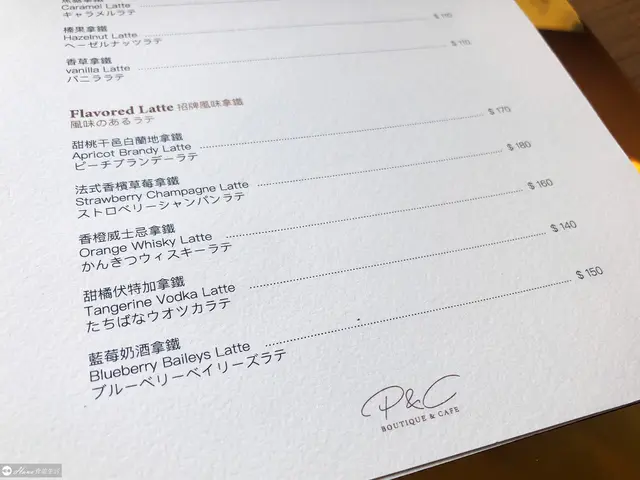 焦糖拿鐵
Caramel Latte
キャラメルラテ
榛果拿鐵
Hazelnut Latte $ 110
ヘーゼルナッツラテ
香草拿鐵
vanilla Latte $ 110
バニララテ
Flavored Latte 招牌風味拿鐵
風味のあるラテ
甜桃干邑白蘭地拿鐵
Apricot Brandy Latte $ 170
ピーチブランデーラテ
法式香檳草莓拿鐵
Strawberry Champagne Latte $ 180
ストロベリーシャンパンラテ
香橙威士忌拿鐵
Orange Whisky Latte $ 160
かんきつウィスキーラテ
甜橘伏特加拿鐵
Tangerine Vodka Latte $ 140
たちばなウオツカラテ
藍莓奶酒拿鐵
Blueberry Baileys Latte $ 150
ブルーベリーベイリーズラテ
P&C
BOUTIQUE & CAFE